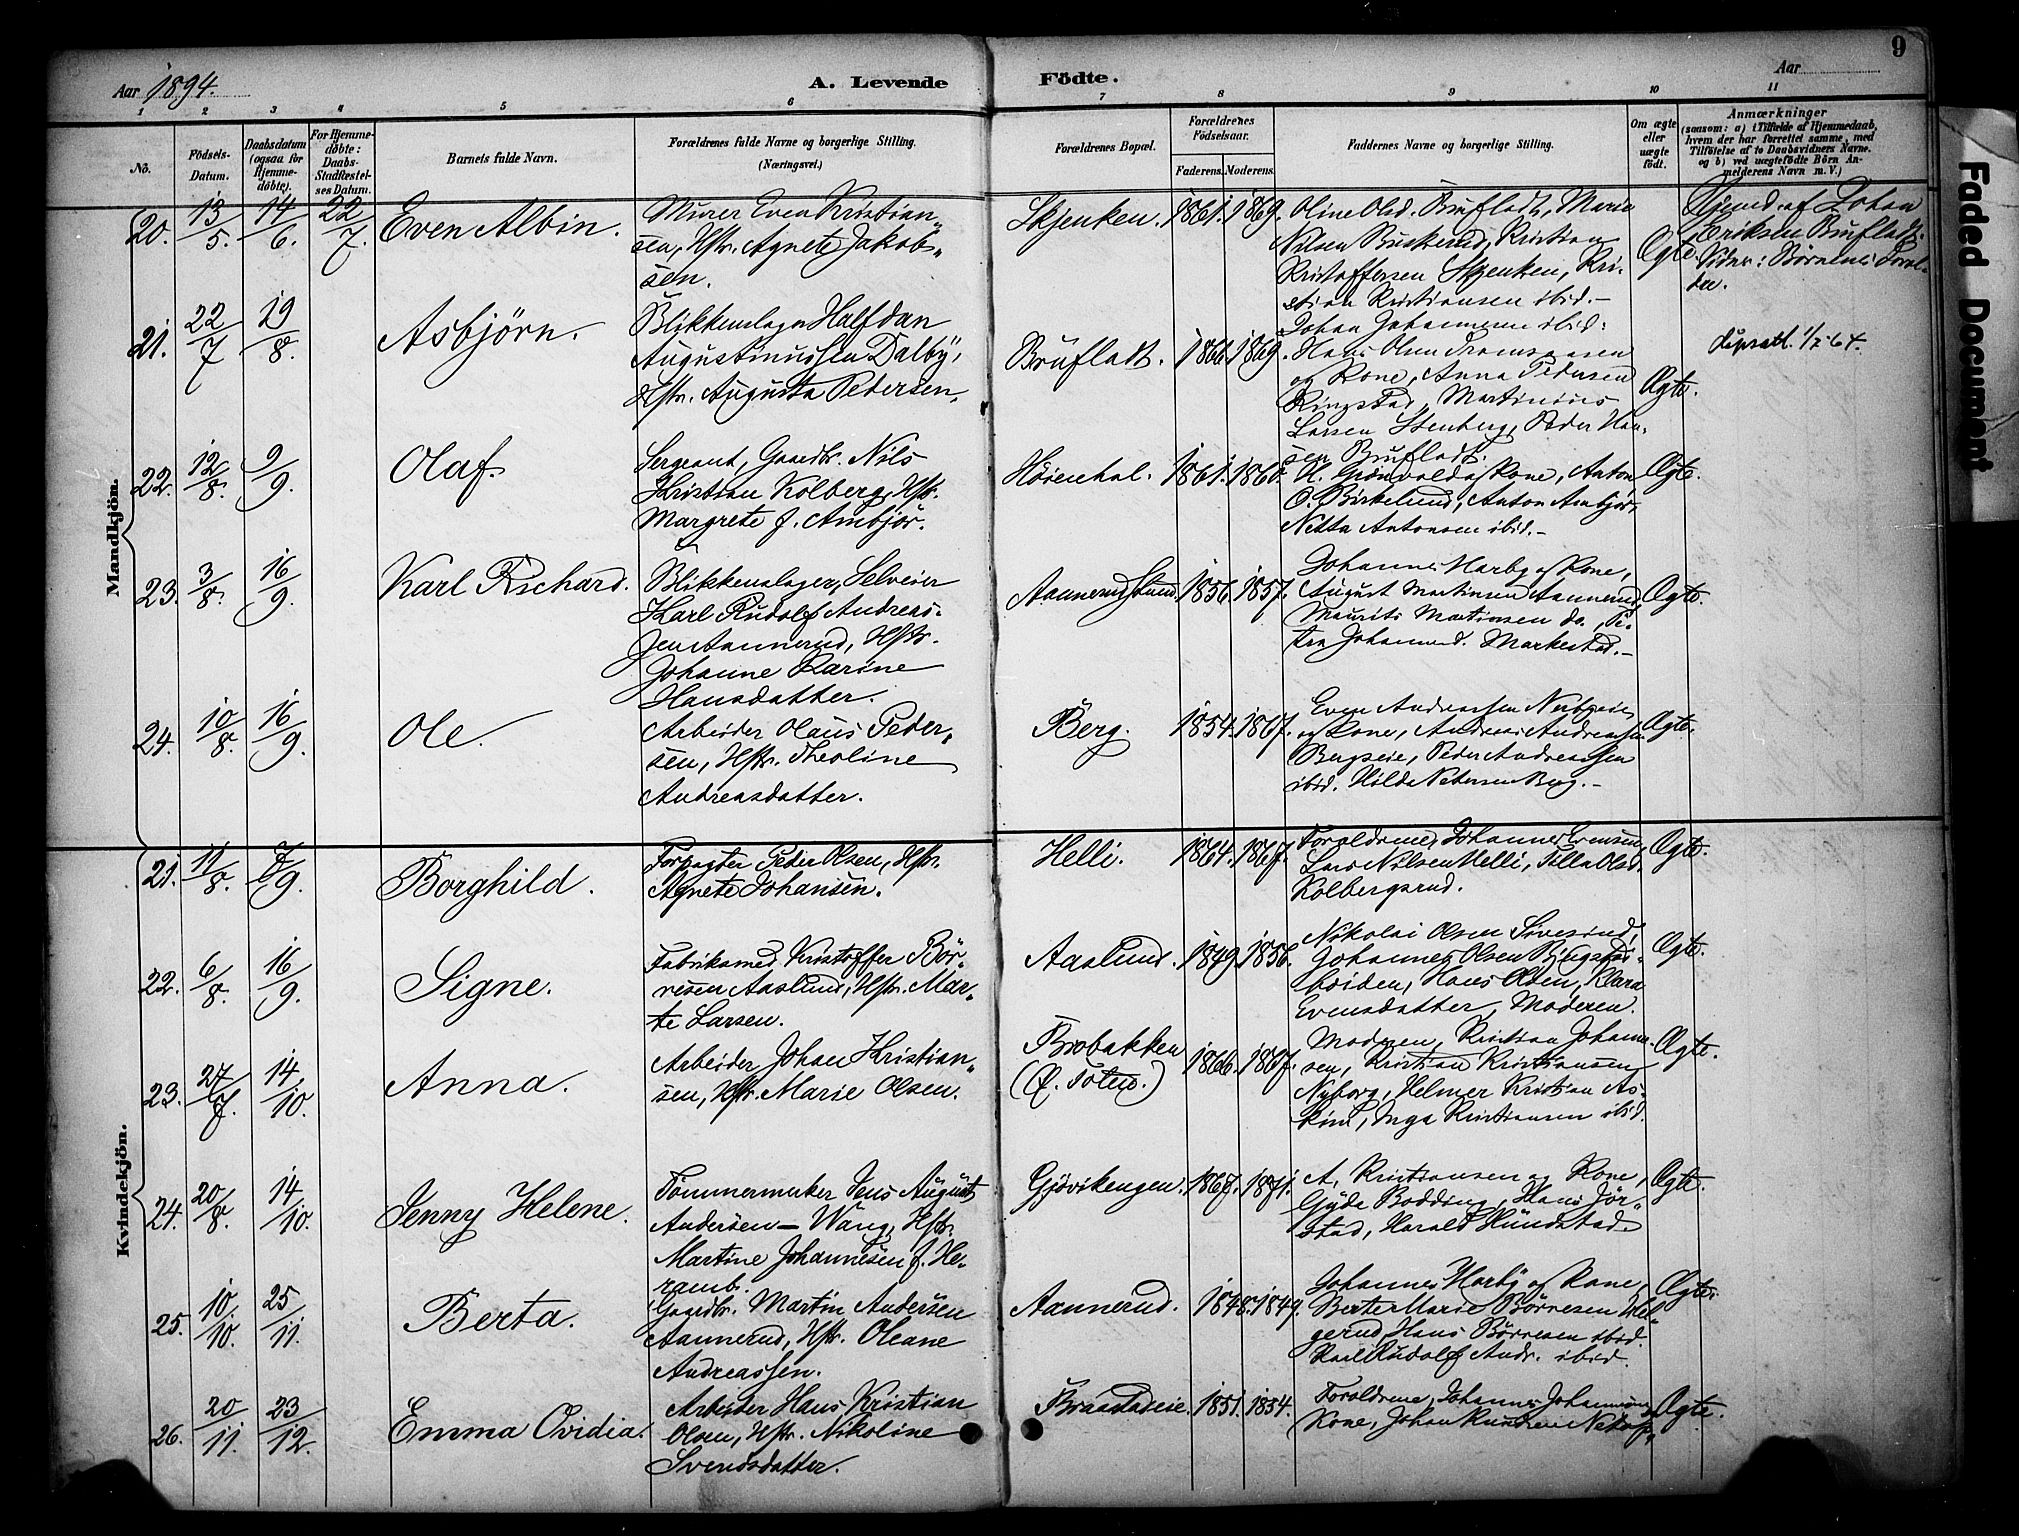 9
Aar 1894.
A. Levende Födte.
Aar
1 2 3 4 5 6 7 8 9 10 11
No.
Födsels-
Datum.
Daabsdatum
(ogsaa for
Hjemme-
döbte).
For Hjemme-
döbte:
Daabs-
Stadfæstel-
ses Datum.
Barnets fulde Navn.
Forældrenes fulde Navne og borgerlige Stilling.
(Næringsvei.)
Forældrenes Bopæl.
Forældrenes
Födselsaar.
Faderens. Moderens.
Faddernes Navne og borgerlige Stilling.
Om ægte
eller
uægte
födt.
Anmærkninger
(saasom: a) i Tilfælde af Hjemmedaab,
hvem der har forrettet samme, med
Tilföielse af to Daabsvidners Navne.
og b) ved uægtefödte Börn An-
melderens Navn m. V.)
Mandkjön.
20. 13/5. 14/6. 22/7. Even Albin.
Murer Even Kristian-
sen, Hstr. Agnete Jakob-
sen.
Skjenken. 1861. 1869.
Oline Olsd. Brufladt, Marie
Nilsen Buskerud, Kristian
Kristoffersen Skjenken, Kri-
stian Kristiansen ibid.-
Ægte.
Hjemd. af Johan
Eriksen Brufladt.
Vidner: Børnenes Foræl-
dre.
21. 22/7 19/8. Asbjörn.
Blikkenslager Halfdan
Augustinussen Dalby,
Hstr. Augusta Pedersen.
Brufladt. 1866. 1869.
Johan Johannesen ibid.
Hans Olsen
og Kone, Anna Pedersen
Ringstad, Martinius
Larsen Stenberg, Peder Han-
sen Brufladt.
Ægte.
dåpsatt. 1/7-64.
22. 12/8. 9/9. Olaf.
Sergeant, Gaardbr. Nils
Kristian Kolberg, Hstr.
Margrete f. Ambjör.
Høienhal. 1861. 1860.
H. Grönvold og Kone, Anton
O. Birkelund, Anton Ambjör,
Netta Antonsen ibid.-
Ægte.
23. 3/8. 16/9. Karl Richard.
Blikkenslager, Selveier
Karl Rudolf Andreas-
sen Aannerud, Hstr.
Johanne Karine
Hansdatter.
Aannerud Stund. 1856. 1857.
Johannes Harby og Kone,
August Martinsen Aannerud,
Maurits Martinsen do., Pe-
tra Johannesd. Markestad.-
Ægte.
24. 10/8. 16/9. Ole.
Arbeider Olaus Peder-
sen, Hstr. Theoline
Andreasdatter.
Berg. 1854. 1867.
Even Andreassen
og Kone, Andreas Andreassen
Bergseie, Peder Andreassen
ibid. Hilda Petersen Berg.-
Ægte.
Kvindekjön.
21. 11/8. 7/9. Borghild.
Forpagter Peder Olsen, Hstr.
Agnete Johansen.
Helli. 1864. 1867.
Forældrene, Johannes Evensen,
Lars Nilsen Helli, Tilla Olsd.
Kolbergsrud.
Ægte.
22. 6/8. 16/9. Signe.
Fabriksmed Kristoffer Bör-
resen Aaslund, Hstr. Mar-
te Larsen.
Aaslund. 1849. 1856.
Nikolai Olsen Siverud,
Johannes Olsen Ringstad-
beiden, Hans Olsen, Klara
Evensdatter, Moderen.
Ægte.
23. 27/7. 14/10. Anna.
Arbeider Johan Kristian-
sen, Hstr. Marie Olsen.
Brobakken
(Ø. Toten.) 1866. 1867.
Moderen, Kristian Johanne-
sen, Kristian Kristiansen
Nyborg, Helmer Kristian
Inga Kristiansen ibid.
Ægte.
24. 20/8. 14/10. Jenny Helene.
Tömmermerker Jens August
Andersen-Wang, Hstr.
Martine Johannesen f. He-
ramb.
Gjövikengen. 1867. 1871.
A. Kristiansen og Kone,
Gyda Bodding, Hans Jör-
stad, Harald Hundstad.
Ægte.
25. 10/10. 25/11. Berta.
Gaardbr. Martin Andersen
Aannerud, Hstr. Oleane
Andreassen.
Aannerud. 1848. 1849.
Johannes Harby og Kone,
Berte Marie Börresen
gerud, Hans Börresen ibid.
Karl Rudolf Andr. ibid.
Ægte.
26. 20/11. 23/12. Emma Ovidia.
Arbeider Hans Kristian
Olsen, Hstr. Nikoline
Svendsdatter.
Braastadeie. 1851. 1854.
Forældrene, Johannes Johannesen,
Kone, Johan Knudsen
Ægte.
Faded Document